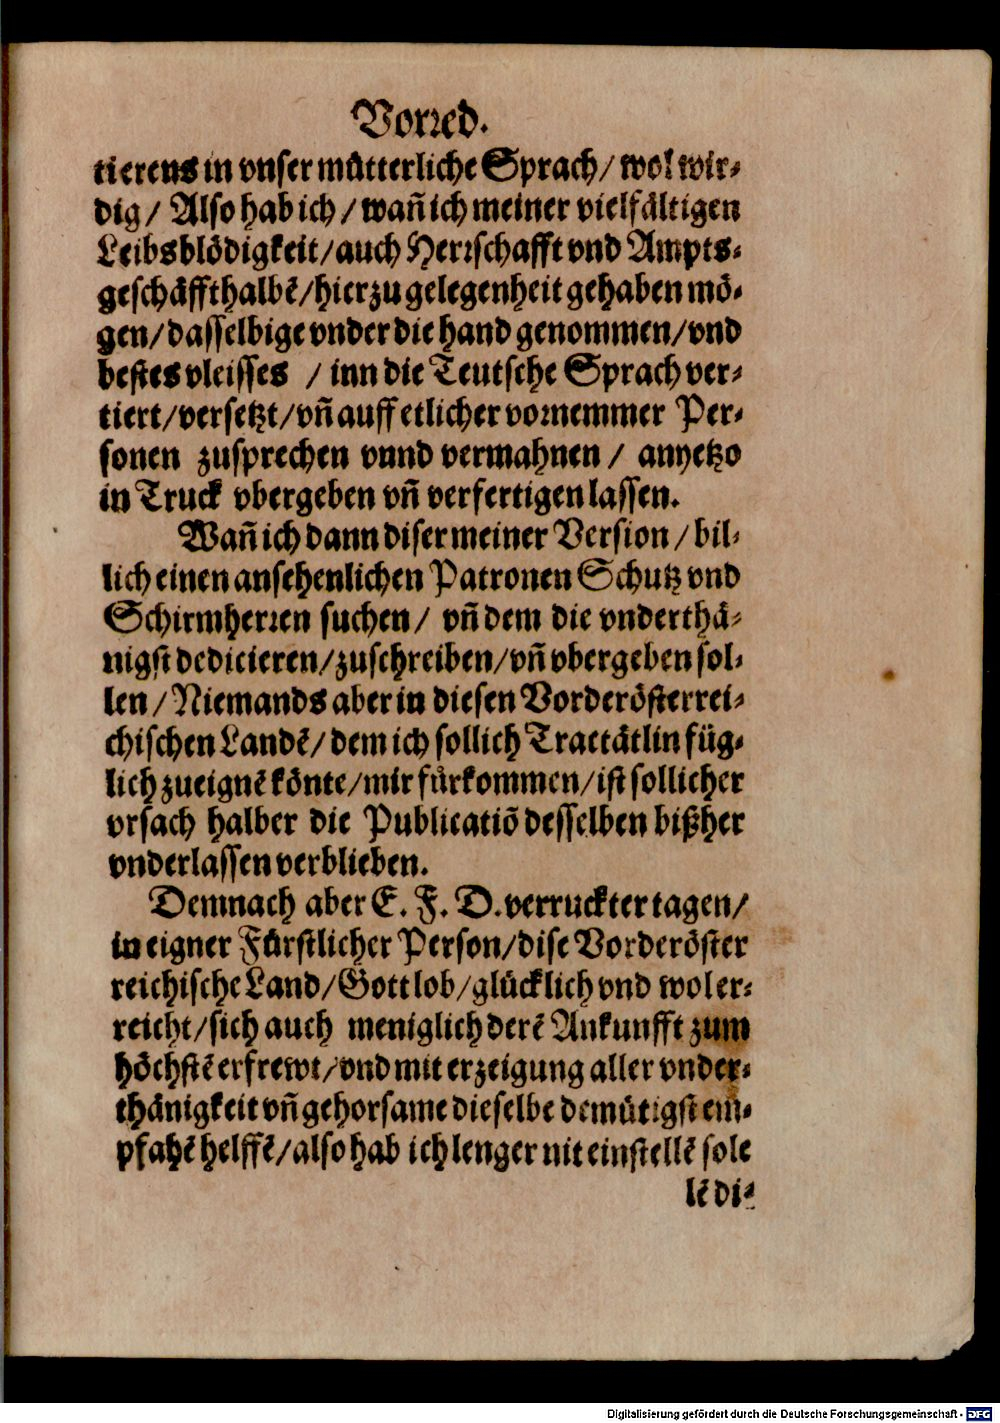 Vorꝛed.
tierens in vnser mütterliche Sprach/ wol wir⸗
dig/ Also hab ich/ wañ ich meiner vielfältigen
Leibsblödigkeit/auch Herꝛschafft vnd Ampts⸗
geschäffthalbẽ/hierzu gelegenheit gehaben mö⸗
gen/dasselbige vnder die hand genommen/vnd
bestes vleisses /inn die Teutsche Sprach ver⸗
tiert/versetzt/vñ auff etlicher voꝛnemmer Per⸗
sonen zusprechen vnnd vermahnen/ anyetzo
in Truck vbergeben vñ verfertigen lassen.
Wañ ich dann diser meiner Version/bil⸗
lich einen ansehenlichen Patronen Schutz vnd
Schirmherꝛen suchen/ vñ dem die vnderthä⸗
nigst dedicieren/zuschreiben/vñ vbergeben sol⸗
len/Niemands aber in diesen Vorderösterrei⸗
chischen Landẽ/dem ich sollich Tractätlin füg⸗
lich zueignẽ könte/mir fürkommen/ist sollicher
vrsach halber die Publicatiõ desselben bißher
vnderlassen verblieben.
Demnach aber E. F. D. verruckter tagen/
in eigner Fürstlicher Person/dise Vorderöster
reichische Land/Gott lob/glücklich vnd wol er⸗
reicht/sich auch meniglich derẽ Ankunfft zum
höchstẽ erfrewt/vnd mit erzeigung aller vnder⸗
thänigkeit vñ gehorsame dieselbe demütigst em⸗
pfahẽ helffẽ/also hab ich lenger nit einstellẽ sole
lẽ di⸗
Digitalisierung gefördert durch die Deutsche Forschungsgemeinschaft - DFG